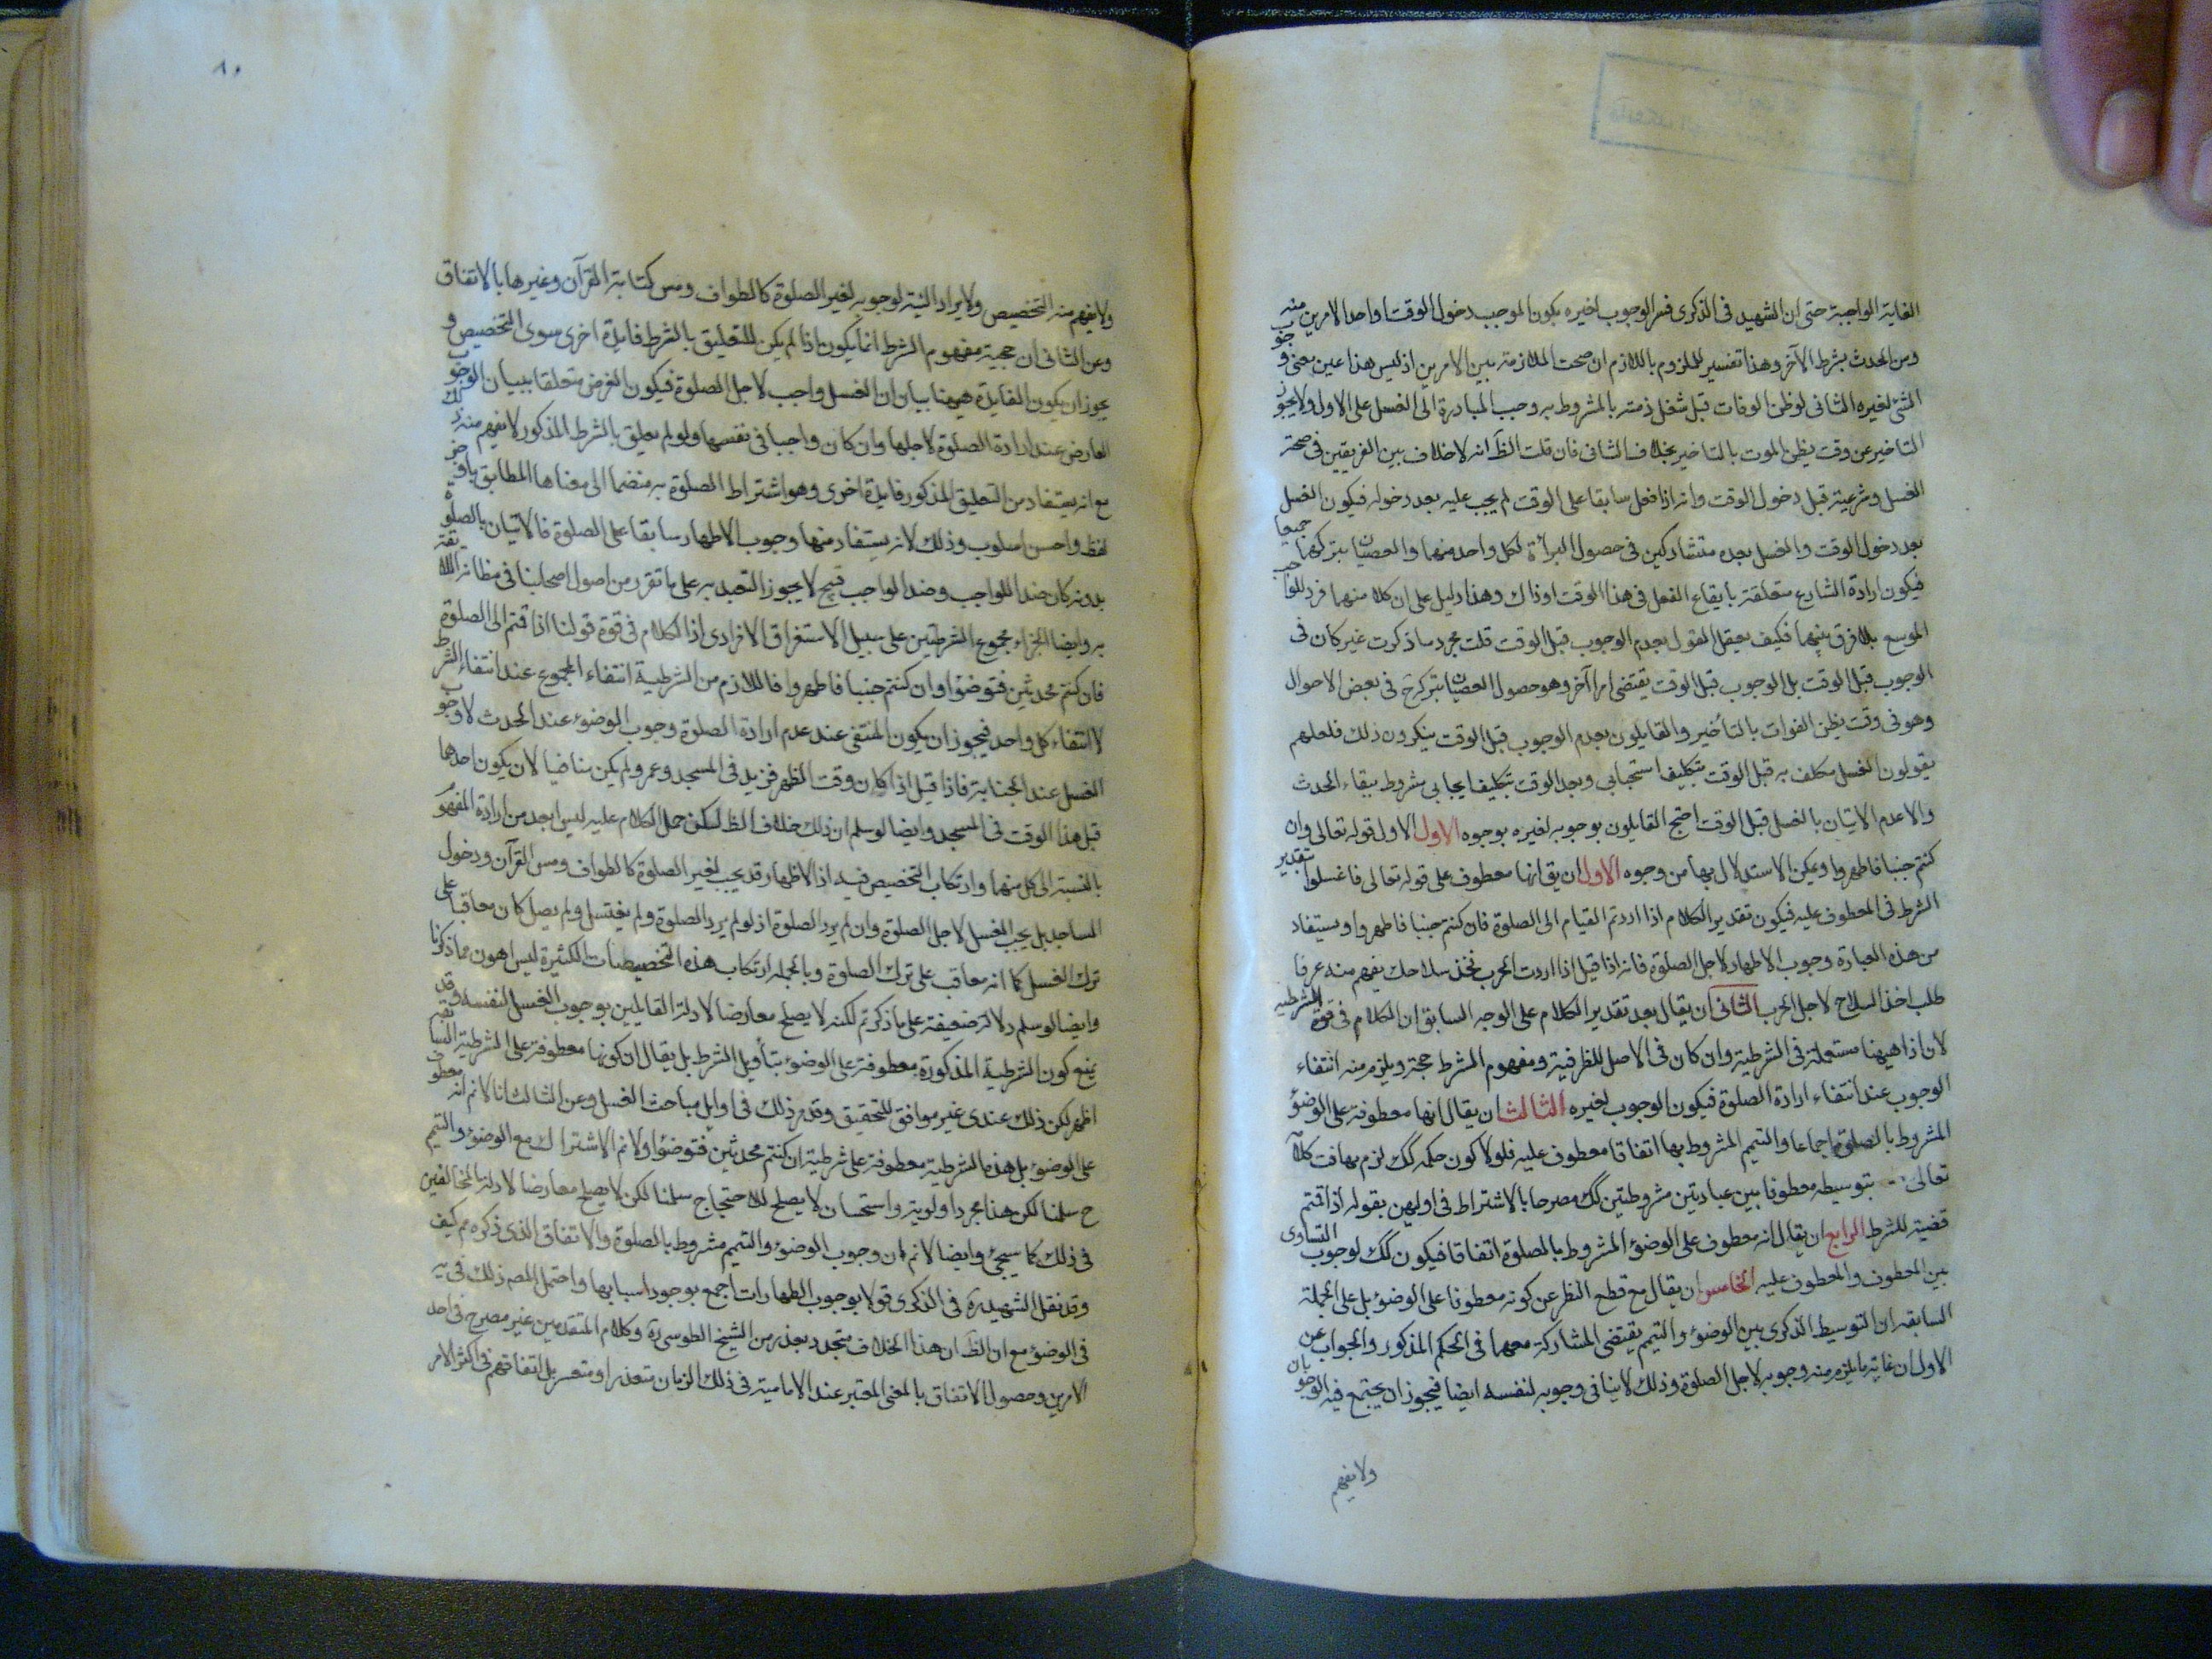 الغاية الواجبة حتى ان الشهيد فى الذكرى فسر الوجوب لغيره بكون الموجب دخول الوقت او احد الامرين منه
ومن الحدث بشرط الآخر وهذا تفسير للملزوم باللازم ان صحت الملازمة بين الامرين اذ ليس هذا عين معنى وجوب
الشئ لغيره الثانى لو ظن الوفات قبل شغل ذمته بالمشروط به وجب المبادرة الى الغسل على الاول ولا يجوز
التاخير عن وقت يظن الموت بالتاخير بخلاف الثانى فان قلت الظ انه لا خلاف بين الفريقين فى صحة
الغسل وشرعيته قبل دخول الوقت وانه اذا فعل سابقا على الوقت لم يجب عليه بعد دخوله فيكون الغسل
بعد دخول الوقت والغسل بعده متشاركين فى حصول البرأة لكل واحد منهما والعصيان بتركهما جميعا
فيكون ارادة الشارع متعلقة بايقاع الفعل فى هذا الوقت او ذاك وهذا دليل على ان كلا منهما فرد للواجب
الموسع بلا فرق بينهما فكيف يعقل القول بعدم الوجوب قبل الوقت قلت مجرد ما ذكرت غير كان فى
الوجوب قبل الوقت بل الوجوب قبل الوقت يقتضى امرا آخر وهو حصول العصيان بتركه فى بعض الاحوال
وهو فى وقت يظن الفوات بالتأخير والقايلون بعدم الوجوب قبل الوقت ينكرون ذلك فلعلهم
يقولون الغسل مكلف به قبل الوقت بتكليف استحبابى وبعد الوقت بتكليف ايجابى مشروط ببقاء الحدث
والا عدم الاتيان بالغسل قبل الوقت احتج القايلون بوجوبه لغيره بوجوه الاول الاول قوله تعالى وان
كنتم جنبا فاطهروا ويمكن الاستدلال بها من وجوه الاول ان يق انها معطوف على قوله تعالى فاغسلوا بتقدير
الشرط فى المعطوف عليه فيكون تقدير الكلام اذا اردتم القيام الى الصلوة فان كنتم جنبا فاطهروا ويستفاد
من هذه العبارة وجوب الاطهار لاجل الصلوة فانه اذا قيل اذا اردت الحرب فخذ سلاحك يفهم منه عرفا
طلب اخذ السلاح لاجل الحرب الثانى ان يقال بعد تقدير الكلام على الوجه السابق ان الكلام فى قوة الشرطية
لان اذا هيهنا مستعملة فى الشرطية وان كان فى الاصل للظرفية ومفهوم الشرط حجة ويلزم منه انتفاء
الوجوب عند انتفاء ارادة الصلوة فيكون الوجوب لغيره الثالث ان يقال انها معطوفة على الوضؤ
المشروط بالصلوة اجماعا والتيمم المشروط بها اتفاقا معطوف عليه فلولا كون حكمه كك لزم تهافت كلامه
تعالى بتوسيطه معطوفا بين عبادتين مشروطتين كك مصرحا بالاشتراط فى اوليهن بقوله اذا قمتم
قضية للشرط الرابع ان يقال انه معطوف على الوضؤ المشروط بالصلوة اتفاقا فيكون كك لوجوب التساوى
بين المعطوف والمعطوف عليه الخامس ان يقال مع قطع النظر عن كونه معطوفا على الوضؤ بل على الجملة
السابقة ان التوسيط الذكرى بين الوضؤ والتيمم يقتضى المشاركة معهما فى الحكم المذكور والجواب عن
الاول ان غاية ما يلزم منه وجوبه لاجل الصلوة وذلك لا ينافى وجوبه لنفسه ايضا فيجوز ان يجتمع فيه الوجوبان
ولا يفهم
٨٠
ولا يفهم منه التخصيص ولا يراد النية لوجوبه لغير الصلوة كالطواف ومس كتابة القرآن وغيرها بالاتفاق
وعن الثانى ان حجية مفهوم الشرط انما يكون اذا لم يكن للتعليق بالشرط فايدة اخرى سوى التخصيص و
يجوز ان يكون الفايدة هيهنا بيان ان الغسل واجب لاجل الصلوة فيكون الغرض متعلقا ببيان الوجوب
العارض عند ارادة الصلوة لاجلها وان كان واجبا فى نفسها ولو لم يعلق بالشرط المذكور لا يفهم منه ذلك
مع انه يستفاد من التعليق المذكور فايدة اخرى وهو اشتراط الصلوة به منضما الى معناها المطابق باوجز
لفظ واحسن اسلوب وذلك لانه يستفاد منها وجوب الاطهار سابقا على الصلوة فالاتيان بالصلوة
بدونه كان ضدا للواجب وضد الواجب قبيح لا يجوز التعبد به على ما تقرر من اصول اصحابنا فى مظانه اللائقة
به وايضا الجزاء مجموع الشرطيتين على سبيل الاستغراق الافرادى اذ الكلام فى قوة قولنا اذا قمتم الى الصلوة
فان كنتم محدثين فتوضؤا وان كنتم جنبا فاطهروا فاللازم من الشرطية انتفاء المجموع عند انتفاء الشرط
لا انتفاء كل واحد فيجوز ان يكون المنتفى عند عدم ارادة الصلوة وجوب الوضوء عند الحدث لا وجوب
الغسل عند الجنابة فاذا قيل اذا كان وقت الظهر فزيد فى المسجد وعمرو لم يكن منافيا لان يكون احدهما
قبل هذا الوقت فى المسجد وايضا لو سلم ان ذلك خلاف الظ لكن حمل الكلام عليه ليس ابعد من ارادة المفهوم
بالنسبة الى كل منهما وارتكاب التخصيص فيه اذ الاطهار قد يجب لغير الصلوة كالطواف ومس القرآن ودخول
المساجد بل يجب الغسل لاجل الصلوة وان لم يرد الصلوة اذ لو لم يرد الصلوة ولم يغتسل ولم يصل كان معاقبا على
ترك الغسل كما انه معاقب على ترك الصلوة وبالجملة ارتكاب هذه التخصيصات الكثيرة ليس اهون مما ذكرنا
وايضا لو سلم دلالة ضعيفة على ما ذكرتم لكنه لا يصلح معارضا لادلة القايلين بوجوب الغسل لنفسه وقد
يمنع كون الشرطية المذكورة معطوفة على الوضوء بتأويل الشرط بل يقال ان كونها معطوفة على الشرطية السابقة
اظهر لكن ذلك عندى غير موافق للتحقيق وقد مر ذلك فى اوايل مباحث الغسل وعن الثالث انا لا نم انه معطوف
على الوضوء بل هذه الشرطية معطوفة على شرطية ان كنتم محدثين فتوضؤا ولا نم الاشتراك مع الوضوء والتيمم
ح سلمنا لكن هذا مجرد اولوية واستحسان لا يصلح للاحتجاج سلمنا لكن لا يصلح معارضا لادلة المخالفين
فى ذلك كما سيجئ وايضا لا نم ان وجوب الوضوء والتيمم مشروط بالصلوة والاتفاق الذى ذكره مم كيف
وقد نقل الشهيد ره فى الذكرى قولا بوجوب الطهارات اجمع بوجود اسبابها واحتمل المص ذلك فى يه
فى الوضوء مع ان الظ ان هذا الخلاف متجدد بعد زمن الشيخ الطوسى ره وكلام المتقدمين غير مصرح فى احد
الامرين وحصول الاتفاق بالمعنى المعتبر عند الامامية فى ذلك الزمان متعذر او متعسر بل اتفاقهم فى اكثر الامر